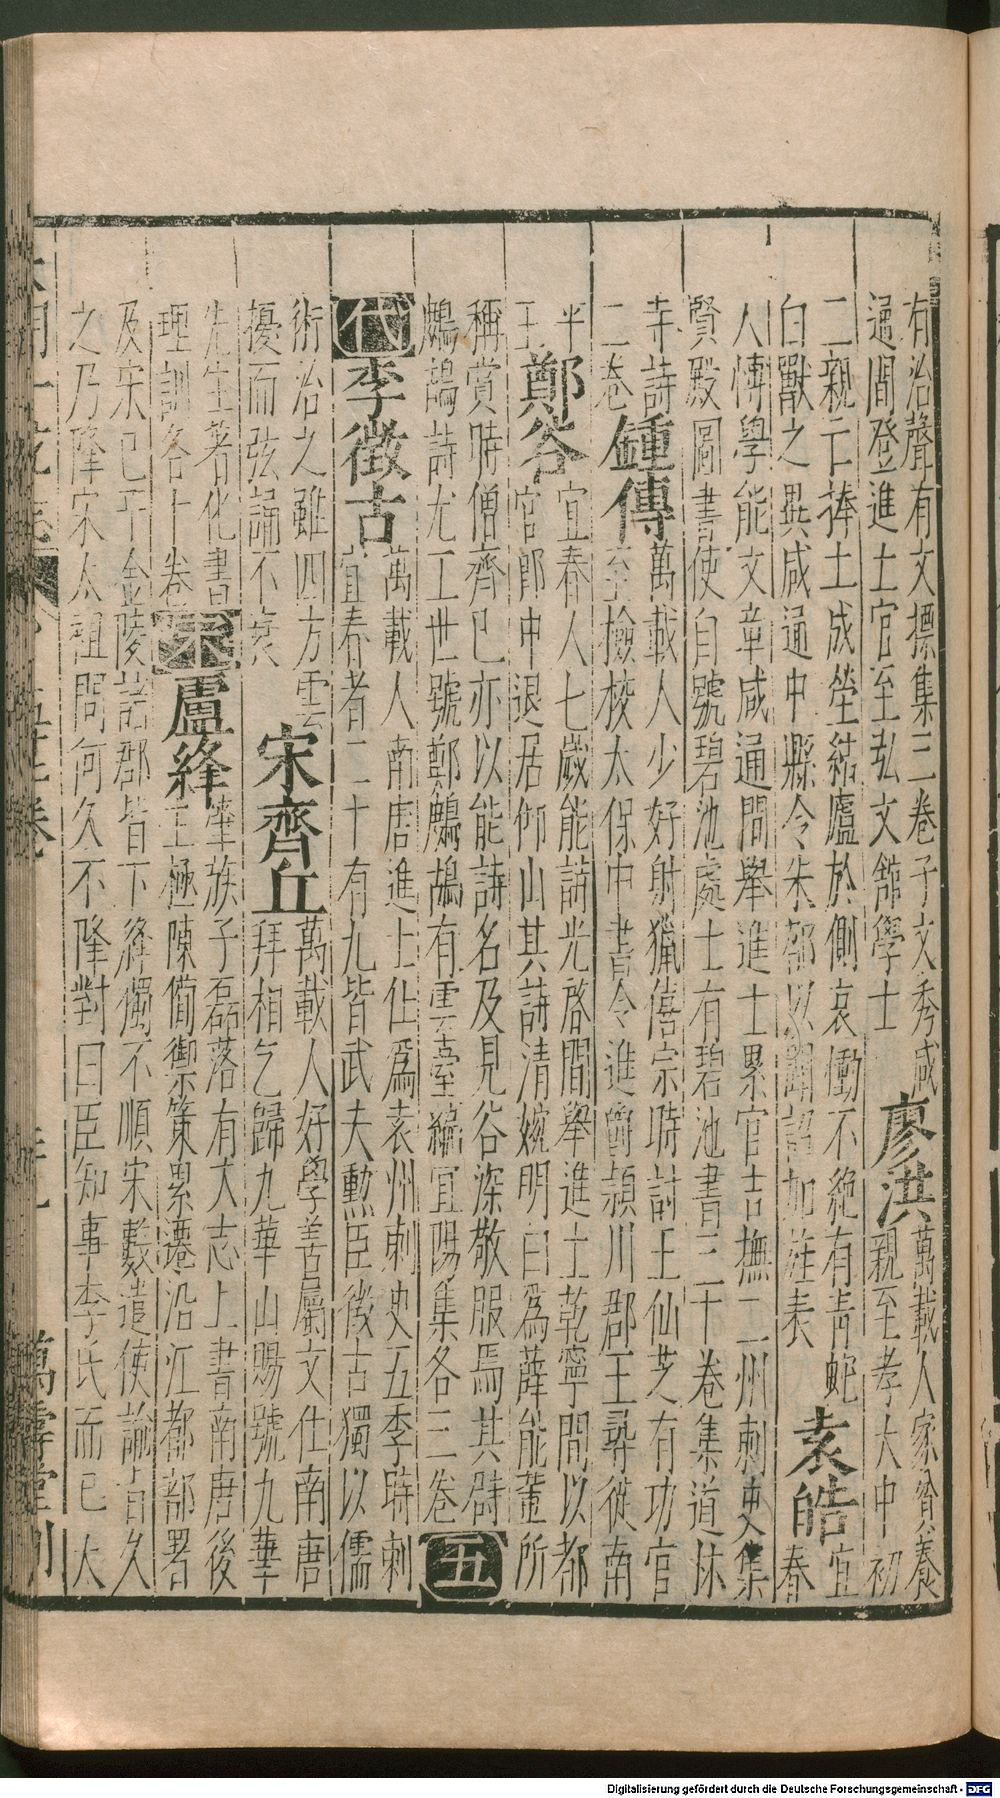 有治聲有文標集三卷子文秀咸
通間登進士官至弘文館學士
廖洪
萬載人家貧養
親至孝大中初
二親亡捧土成塋結廬於側哀慟不絶有青蛇
白獸之異咸通中縣令朱鄀以聞詔加旌表
袁皓
宜
春
人博學能文章咸通間舉進士累官吉撫二州刺史集
賢殿圖書使自號碧池處士有碧池書三十卷集道林
寺詩
二卷
鍾傳
萬載人少好射獵僖宗時討王仙芝有功官
至檢校太保中書令進爵潁川郡王尋從南
平
王
鄭谷
宜春人七歲能詩光啓間舉進士乾寧間以都
官郎中退居仰山其詩清婉明白為薛能董所
稱賞時僧齊已亦以能詩名及見谷深敬服焉其辟
鷓鴣詩尤工世號鄭鷓鴣有雲臺編宜陽集各三卷
五
代
李徵古
萬載人南唐進士仕為袁州刺史五季時刺
宜春者二十有九皆武夫勲臣徵古獨以儒
術治之雖四方雲
擾而弦誦不衰
宋齊丘
萬載人好學善屬文仕南唐
拜相乞歸九華山賜號九華
先生著化書
理訓各十卷
宋
盧絳
肇族子磊落有大志上書南唐後
主極陳備禦策累遷沿江都部署
及宋已平金陵諸郡皆下絳獨不順宋數遣使諭旨久
之乃降宋太祖問何久不降對曰臣知事李氏而已太
萬壽堂刊
Digitalisierung gefördert durch die Deutsche Forschungsgemeinschaft - DFG